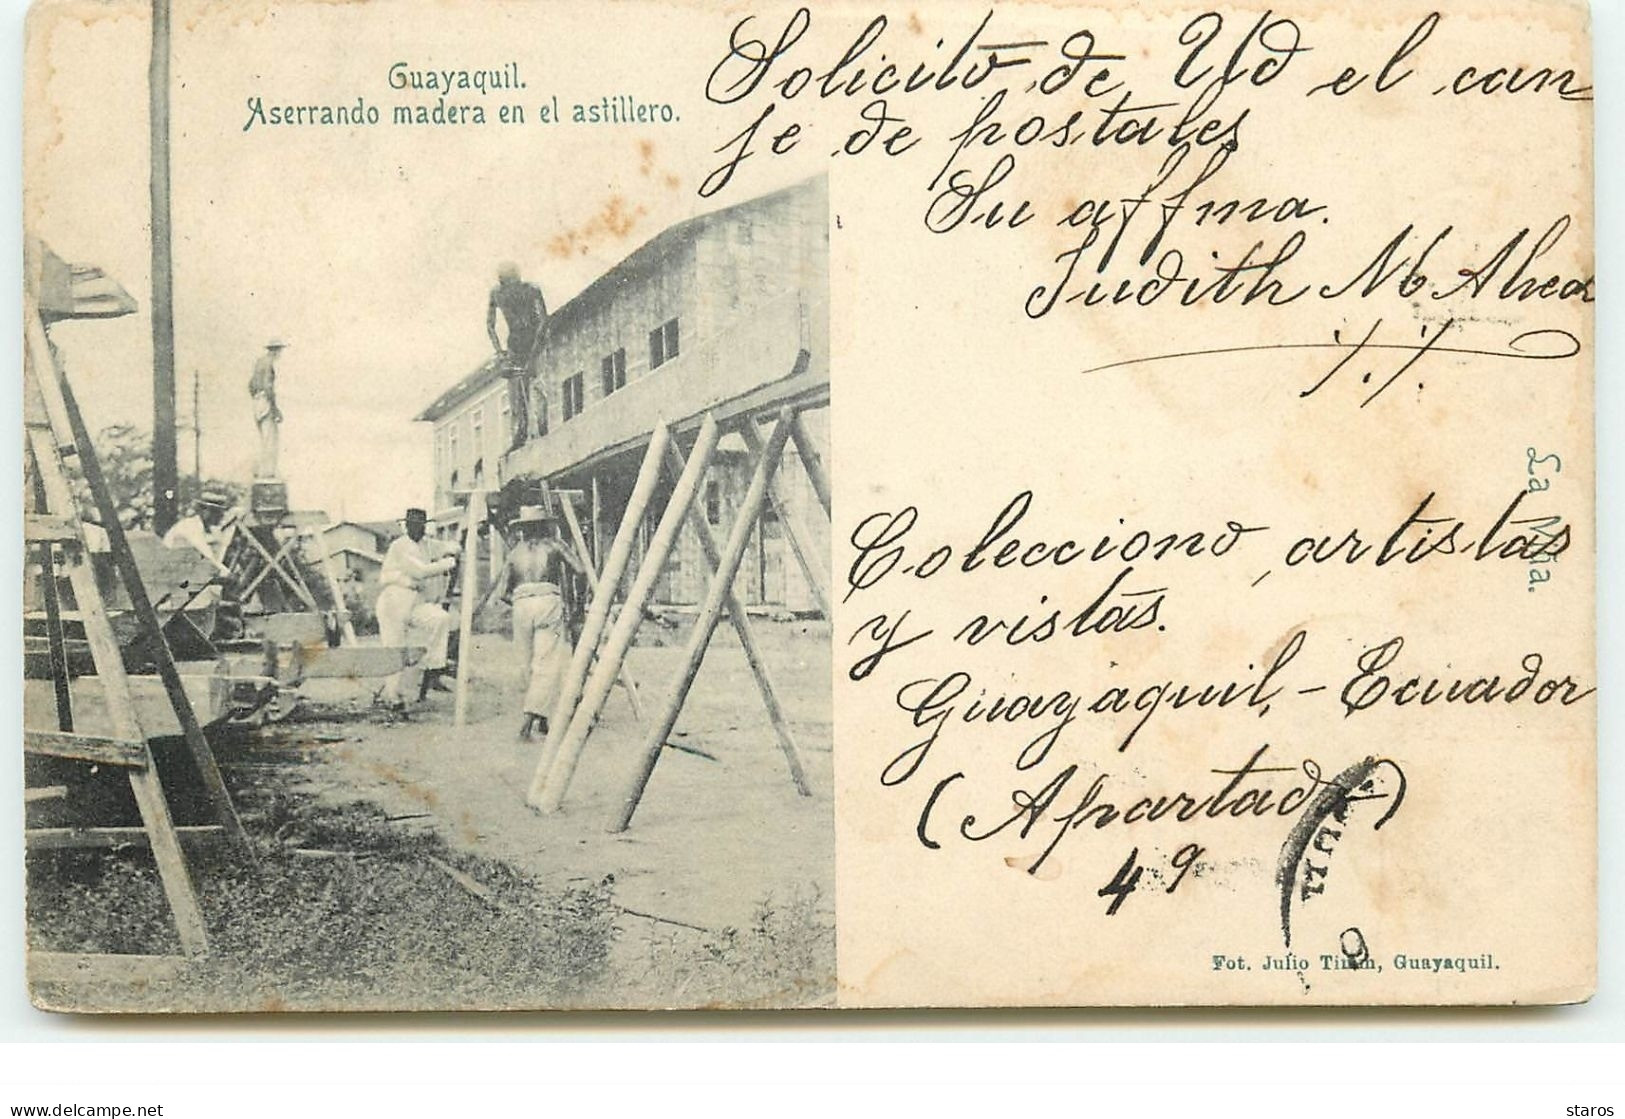 Guayaquil.
Aserrando madera en el astillero.
Solicito de Ud el can
je de postales
Su affma.
Judith M
Colecciono artistas
y vistas.
Guayaquil, - Ecuador
(Apartado)
49
La Viña.
Fot. Julio Timm, Guayaquil.
delcampe.net
staros